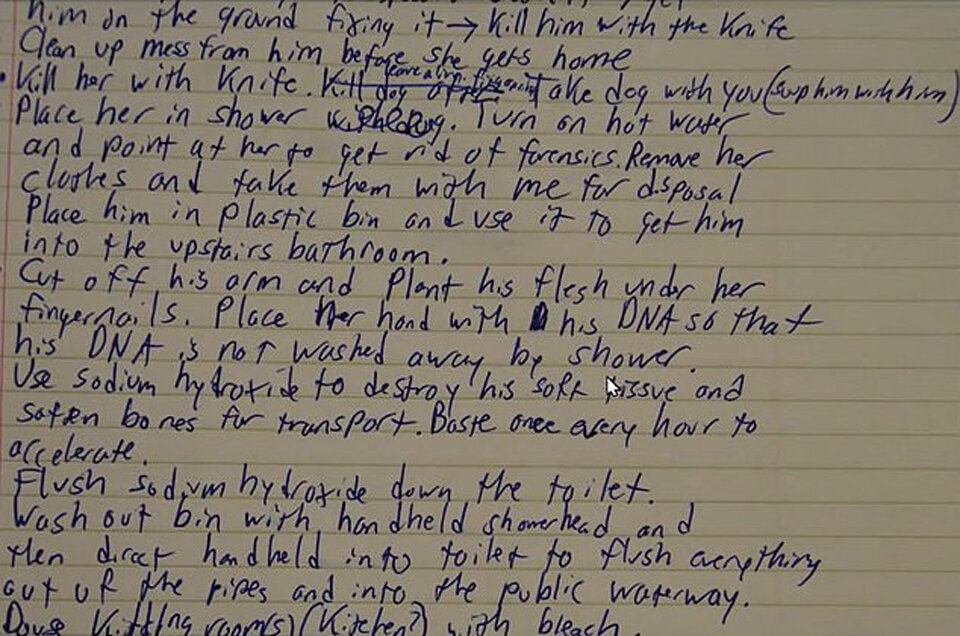 him on the ground fixing it → Kill him with the Knife
Clean up mess from him before she gets home
• Kill her with Knife. Kill dog Take dog with you (
Place her in shower. Turn on hot water
and point at her to get rid of forensics. Remove her
clothes and take them with me for disposal
Place him in plastic bin and use it to get him
into the upstairs bathroom.
Cut off his arm and plant his flesh under her
fingernails. Place her hand with his DNA so that
his DNA is not washed away by shower.
Use sodium hydroxide to destroy his soft tissue and
soften bones for transport. Baste once every hour to
accelerate.
Flush sodium hydroxide down the toilet.
Wash out bin with handheld showerhead and
then direct handheld into toilet to flush everything
out of the pipes and into the public waterway.
Douse Killing room(s) (Kitchen?) with bleach.